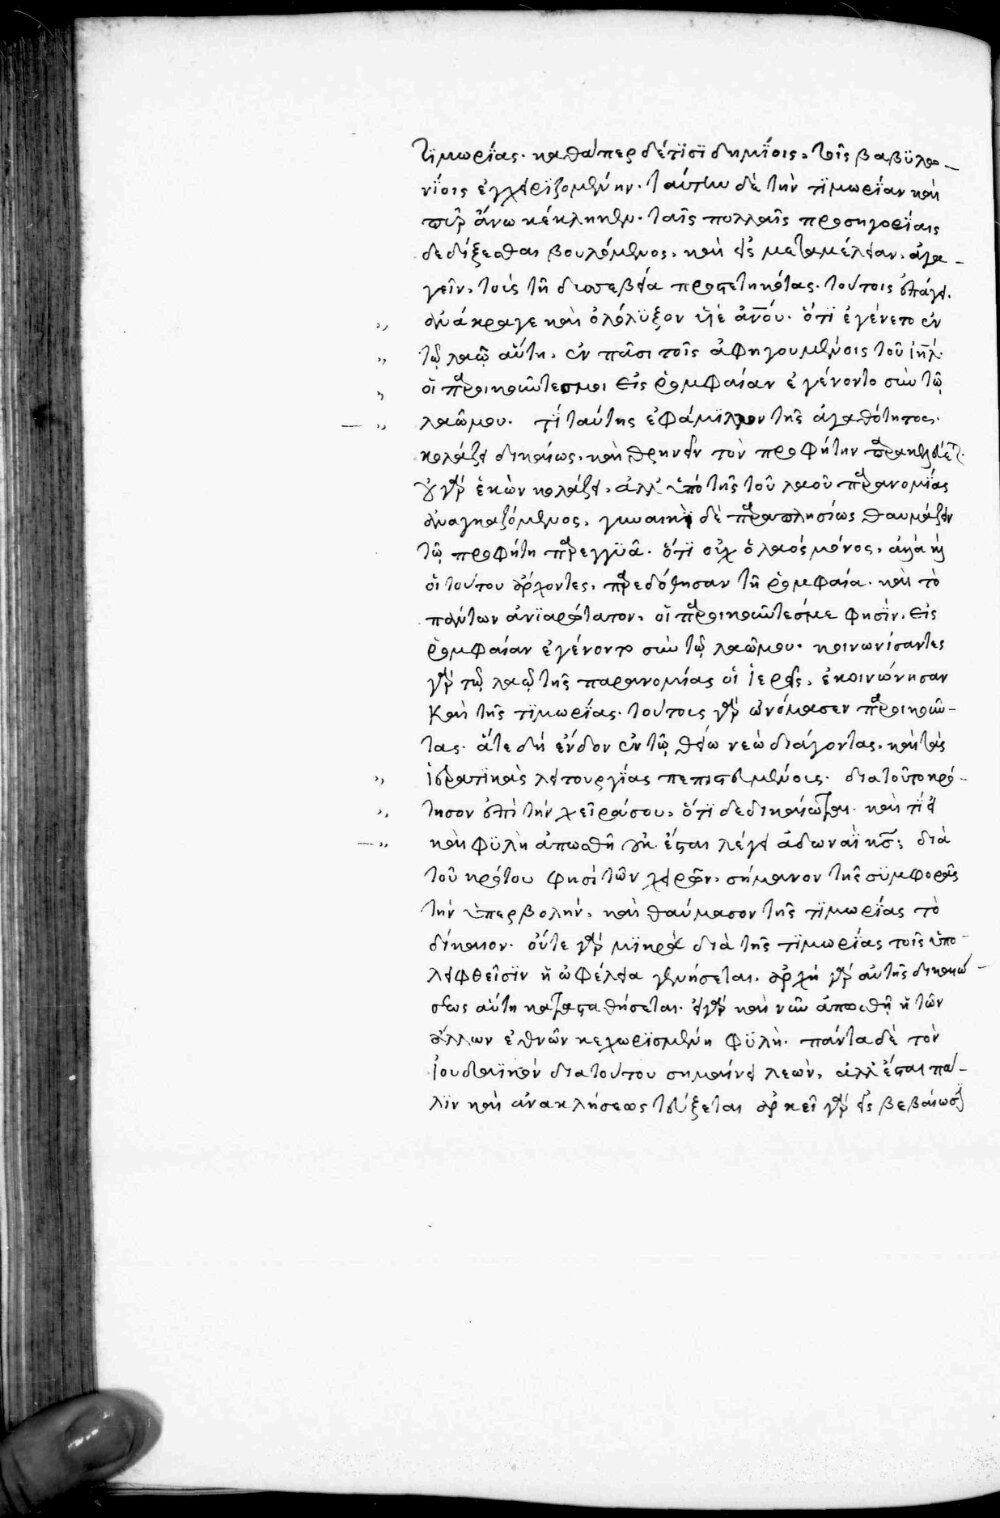 τϊμωρΐας· καθάπερ δέτϊσϊ δημΐοις, τοῖς βαβϋλω–
νΐοις ἐγχειρϊζομένην· ταύτην δὲ τὴν τϊμωρίαν καὶ
πῦρ ἄνω κέκληκεν· ταῖς πολλαῖς προσηγορΐαις
δεδίξεσθαι βουλόμενος, καὶ εἰς μεταμέλειαν, ἀγα–
γεῖν, τοὺς τῆ δυσσεβεία προστετηκότας· τούτοις ἐπάγει,
ἀνάκραγε καὶ ὀλόλϋξον υἱὲ ἀνου· ὅτϊ ἐγένετο ἐν
τῷ λαῷ αὕτη, ἐν πᾶσι τοῖς ἀφηγουμένοις τοῦ ιηλ·
οἱ παροικοῦντεσμοι εἰς ῥομφαίαν ἐγένοντο σὺν τῷ
λαῶμου· τΐ ταύτης ἐφάμϊλλον τῆς ἀγαθότητος·
κολάζει δικαίως, καὶ θρηνεῖν τὸν προφήτην παρακελεύετ
οὐ γὰρ ἑκὼν κολάζει, ἀλλ' ὑπὸ τῆς τοῦ λαοῦ παρανομίας
ἀναγκαζόμενος, γυναικὶ δὲ παραπλησίως θαυμάζειν
τῷ προφήτη παρεγγϋᾶ· ὅτϊ οὐχ ὁ λαόσμόνος, ἀλλὰ καὶ
οἱ τούτου ἄρχοντες, παρεδόθησαν τῆ ῥομφαία· καὶ τὸ
πάντων ἀνϊαρότατον, οἱ παροικοῦντεσμε φησϊν, εἰς
ῥομφαίαν ἐγένοντο σὺν τῷ λαῶμου· κοινωνίσαντες
γὰρ τῷ λαῷ τῆς παρανομίας οἱ ἱερεῖς, ἐκοινώνησαν
Καὶ τῆς τϊμωρΐας· τούτοις γὰρ ὠνόμασεν παροικοῦν–
τας· ἅτε δὴ ἔνδον ἐν τῷ θείω νεὼ διάγοντας, καὶ τὰς
ἱερατϊκὰς λειτουργίας πεπιστευμένοις· διατοῦτοκρό–
τησον ἐπὶ τὴν χεῖράσου, ὅτϊ δεδικαίωται· καὶ τί εἰ
καὶ φϋλὴ ἀπωσθῆ οὐκ ἔσται λέγει ἀδωναῒ κς; διὰ
τοῦ κρότου φησὶ τῶν χειρῶν, σήμαινον τῆς σϋμφορᾶς
τὴν ὑπερβολήν, καὶ θαύμασον τῆς τϊμωρΐας τὸ
δίκαιον· οὔτε γὰρ μϊκρὰ διὰ τῆς τϊμωρΐας τοῖς ὑπο–
λειφθεῖσϊν ἡ ὠφέλεια γενήσεται, ἀρχὴ γὰρ αὐτῆς δικαιώ–
σεως αὕτη καταστα θήσεται· εἰ γὰρ καὶ νῦν ἀπωσθῆ ἡ τῶν
ἄλλων ἐθνῶν κεχωρϊσμένη φϋλὴ· πάντα δὲ τὸν
ἰουδαϊκὸν διατούτου σημαίνει λεών, ἀλλ' ἔσται πά–
λϊν καὶ ἀνακλήσεως τεύξεται ἀρκεῖ γὰρ εἰς βεβαίωσιν